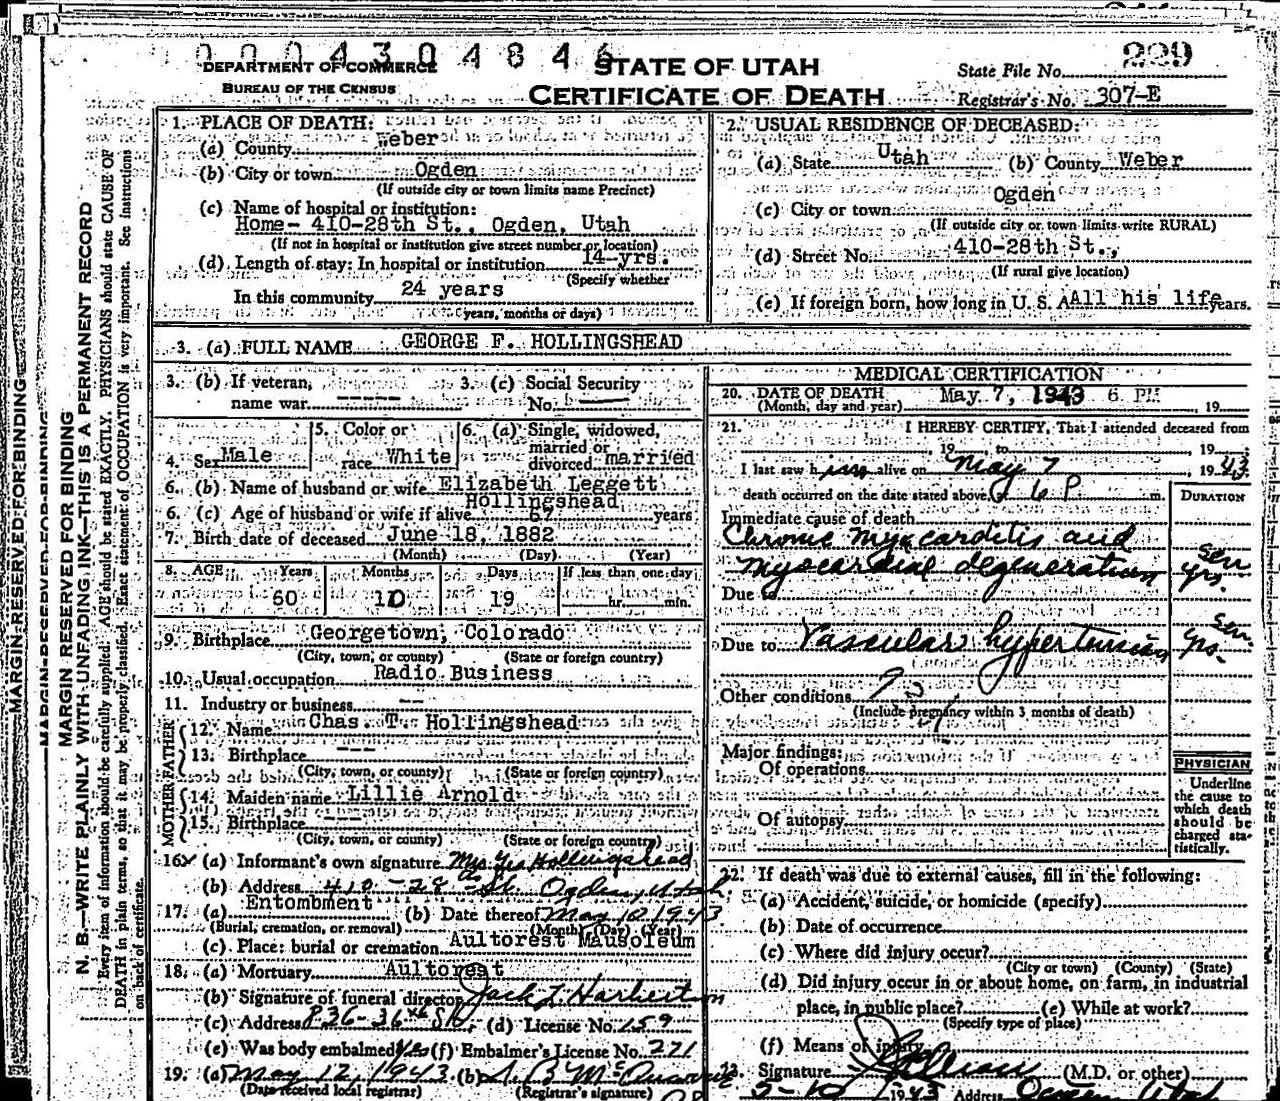 0 0 0 4 3 0 4 8 4 6
DEPARTMENT OF COMMERCE
BUREAU OF THE CENSUS
STATE OF UTAH
CERTIFICATE OF DEATH
State File No. 229
Registrar's No. 307-E
MARGIN RESERVED FOR BINDING
MARGIN RESERVED FOR BINDING
MARGIN RESERVED FOR BINDING
N. B.—WRITE PLAINLY WITH UNFADING INK—THIS IS A PERMANENT RECORD
Every item of information should be carefully supplied. AGE should be stated EXACTLY. PHYSICIANS should state CAUSE OF
DEATH in plain terms, so that it may be properly classified. Exact statement of OCCUPATION is very important. See instructions
on back of certificate.
1. PLACE OF DEATH:
(a) County Weber
(b) City or town Ogden
(If outside city or town limits name Precinct)
(c) Name of hospital or institution:
Home- 410-28th St., Ogden, Utah
(If not in hospital or institution give street number or location)
(d) Length of stay: In hospital or institution 14-yrs.
(Specify whether
In this community 24 years
years, months or days)
2. USUAL RESIDENCE OF DECEASED:
(a) State Utah (b) County Weber
(c) City or town Ogden
(If outside city or town limits write RURAL)
(d) Street No. 410-28th St.,
(If rural give location)
(e) If foreign born, how long in U. S. A. All his life years.
3. (a) FULL NAME GEORGE F. HOLLINGSHEAD
3. (b) If veteran, name war ----- 3. (c) Social Security No.
4. Sex Male 5. Color or race White 6. (a) Single, widowed, married or divorced married
6. (b) Name of husband or wife Elizabeth Leggett Hollingshead
6. (c) Age of husband or wife if alive 67 years
7. Birth date of deceased June 18, 1882
(Month) (Day) (Year)
8. AGE Years Months Days If less than one day
60 10 19 hr. min.
9. Birthplace Georgetown, Colorado
(City, town, or county) (State or foreign country)
10. Usual occupation Radio Business
11. Industry or business --
FATHER
12. Name Chas. T. Hollingshead
13. Birthplace ---
(City, town, or county) (State or foreign country)
MOTHER
14. Maiden name Lillie Arnold
15. Birthplace ---
(City, town, or county) (State or foreign country)
16. (a) Informant's own signature Mrs Geo Hollingshead
(b) Address 410-28th St. Ogden, Utah
17. (a) Entombment (b) Date thereof May 10 1943
(Burial, cremation, or removal) (Month) (Day) (Year)
(c) Place: burial or cremation Aultorest Mausoleum
18. (a) Mortuary Aultorest
(b) Signature of funeral director
(c) Address 836-36th St. (d) License No. 159
(e) Was body embalmed Yes (f) Embalmer's License No. 271
19. (a) May 12, 1943 (b)
(Date received local registrar) (Registrar's signature)
MEDICAL CERTIFICATION
20. DATE OF DEATH May 7, 1943 6 PM
(Month, day and year) , 19
21. I HEREBY CERTIFY, That I attended deceased from
, 19 to , 19
I last saw him alive on May 7, 1943
death occurred on the date stated above 6 P m.
DURATION
Immediate cause of death
Chronic Myocarditis and
myocardial degeneration
yrs.
Due to
Due to Vascular hypertension
yrs.
Other conditions
(Include pregnancy within 3 months of death)
Major findings:
Of operations
Of autopsy
PHYSICIAN
Underline
the cause to
which death
should be
charged sta-
tistically.
22. If death was due to external causes, fill in the following:
(a) Accident, suicide, or homicide (specify)
(b) Date of occurrence
(c) Where did injury occur?
(City or town) (County) (State)
(d) Did injury occur in or about home, on farm, in industrial
place, in public place? (e) While at work?
(Specify type of place)
(f) Means of injury
23. Signature (M.D. or other)
5-10 1943 Address Ogden Utah